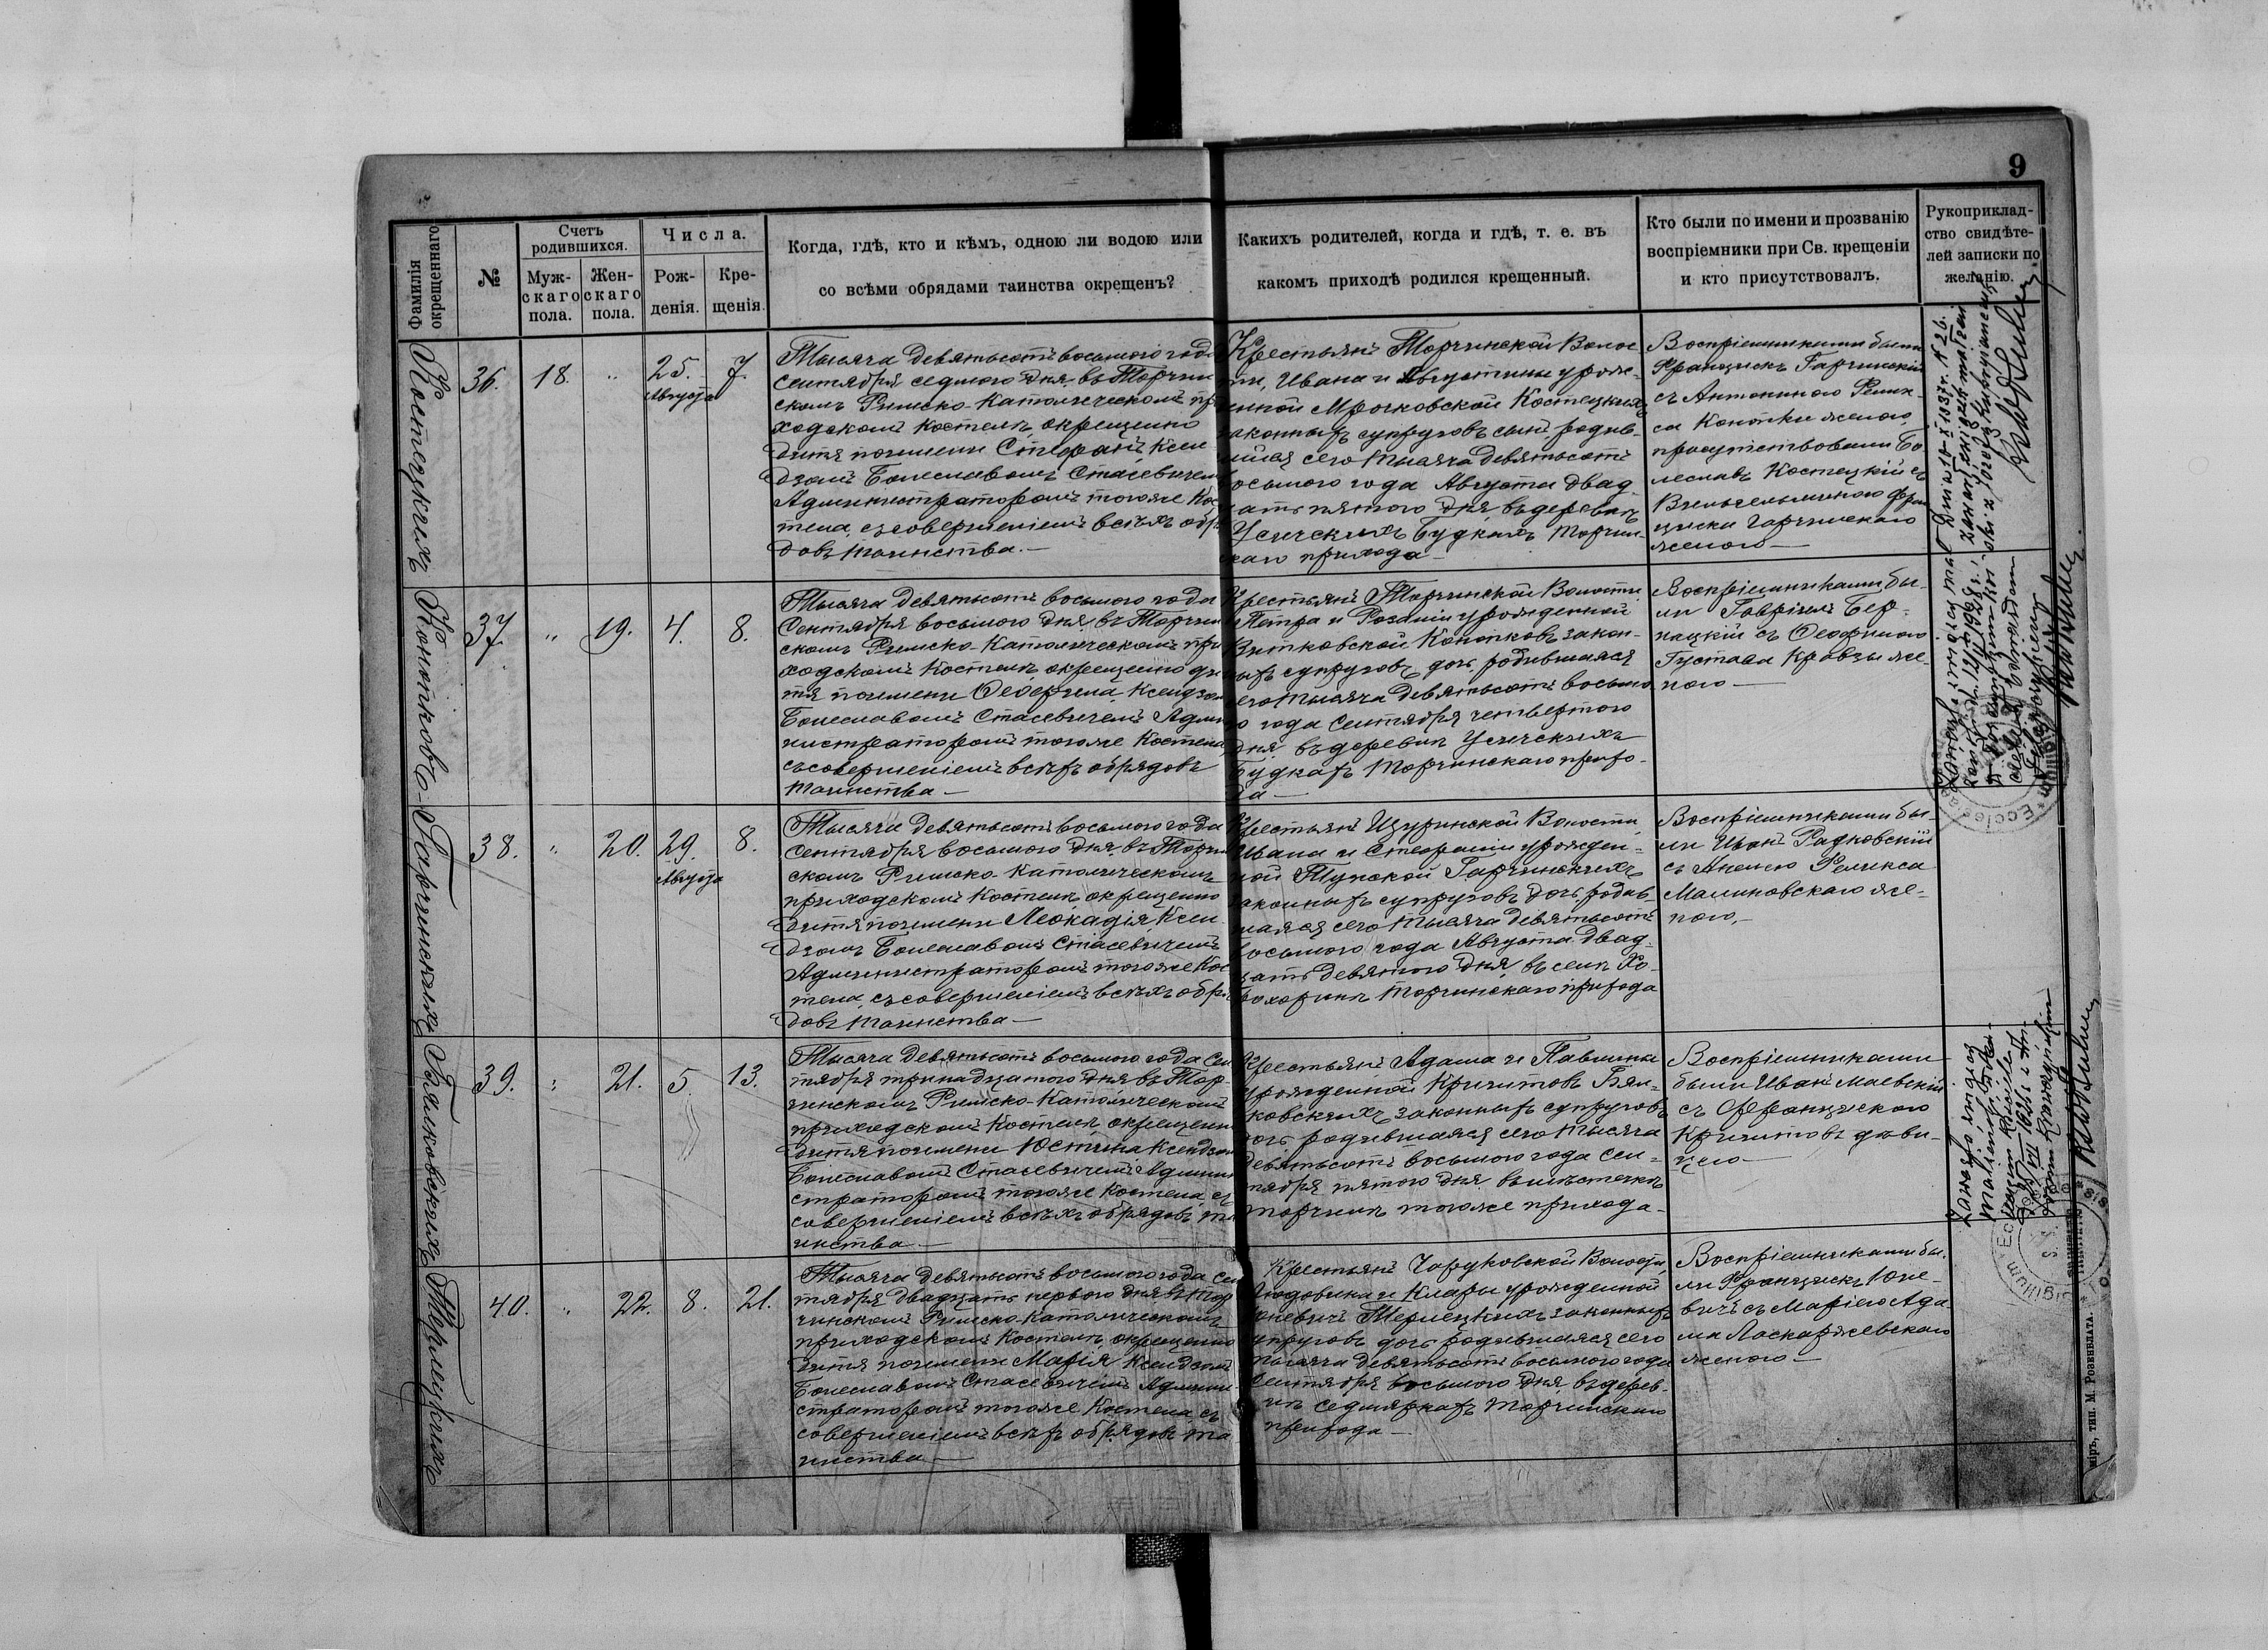 9
Фамилія окрещеннаго
№
Счетъ родившихся.
Муж-скаго пола.
Жен-скаго пола.
Числа.
Рож-денія.
Кре-щенія.
Когда, гдѣ, кто и кѣмъ, одною ли водою или
со всѣми обрядами таинства окрещенъ?
Какихъ родителей, когда и гдѣ, т. е. въ
какомъ приходѣ родился крещенный.
Кто были по имени и прозванію
воспріемники при Св. крещеніи
и кто присутствовалъ.
Рукоприклад-
ство свидѣте-
лей записки по
желанію.
Костецкихъ
36. 18. " 25. Августа 7.
Тысяча девятьсотъ восьмого года
сентября седмого дня, въ Торчин
скомъ Римско-Католическомъ при
ходскомъ костелѣ, окрещено
дитя по имени Стефанъ Ксен
дзомъ Болеславомъ Стасевичемъ
Администраторомъ тогоже Кос
тела, съ совершеніемъ всѣхъ обря
довъ таинства.—
Крестьянъ Торчинской Волос
ти, Ивана и Августины урож-
енной Мрочковской Костецкихъ
законныхъ супруговъ сынъ, родив-
шійся сего тысяча девятьсотъ
восьмого года Августа двад-
цать пятого дня, въ деревнѣ
Усичскихъ Будкахъ Торчин-
скаго прихода—
Воспріемниками были
Францискъ Гарчинскій
съ Антониною Фелик-
са Конопки женою,
присутствовали Бо
леславъ Костецкій съ
Францишка Гарчинскаго
женою—
Конопковъ
37. " 19. 4. 8.
Тысяча девятьсотъ восьмого года
Сентября восьмого дня, въ Торчин
скомъ Римско-Католическомъ при
ходскомъ Костелѣ, окрещено ди
тя по имени Ксендзомъ
Болеславомъ Стасевичемъ Адми
нистраторомъ тогоже Костела
съ совершеніемъ всѣхъ обрядовъ
таинства—
Крестьянъ Торчинской Волости
Петра и Розаліи урожденной
Витковской Конопковъ закон-
ныхъ супруговъ, дочь, родившаяся
сего тысяча девятьсотъ восьмо
го года сентября четвертого
дня въ деревнѣ Усичскихъ
Будкахъ Торчинскаго прихо-
да—
Воспріемниками бы-
ли Гавріилъ Бер-
нацкій съ Ѳеофилою
Густава Кравзы же-
ною—
Гарчинскихъ
38. " 20. 29. Августа 8.
Тысяча девятьсотъ восьмого года
сентября восьмого дня, въ Торчин
скомъ Римско-Католическомъ
приходскомъ Костелѣ, окрещено
дитя по имени Леокадія, Ксен
дзомъ Болеславомъ Стасевичемъ
Администраторомъ тогоже Кос
тела, съ совершеніемъ всѣхъ обря
довъ таинства—
Крестьянъ Щуринской Волости,
Ивана и Стефаніи урожден-
ной Гарчинскихъ
законныхъ супруговъ дочь, родив
шаяся сего тысяча девятьсотъ
восьмого года Августа двад-
цать девятого дня, въ селѣ Хо-
рохоринѣ Торчинскаго прихода
Воспріемниками бы-
ли Иванъ Радковскій
съ Анелею Феликса
Малиновскаго же-
ною,—
Бялковскихъ
39. " 21. 5. 13.
Тысяча девятьсотъ восьмого года Сен
тября тринадцатого дня въ Тор-
чинскомъ Римско-Католическомъ
приходскомъ Костелѣ, окрещено
дитя по имени Юстина Ксендзомъ
Болеславомъ Стасевичемъ Админи
страторомъ тогоже Костела, съ
совершеніемъ всѣхъ обрядовъ та
инства—
Крестьянъ Адама и Павлины
урожденной Бял-
ковскихъ законныхъ супруговъ
дочь родившаяся сего тысяча
девятьсотъ восьмого года сен-
тября пятого дня, въ мѣстечкѣ
Торчинѣ тогоже прихода—
Воспріемниками
были Иванъ Маевскій
съ Францискою
дѣви-
цею—
Терлецкихъ
40. " 22. 8. 21.
Тысяча девятьсотъ восьмого года Сен
тября двадцать первого дня въ Тор
чинскомъ Римско-Католическомъ
приходскомъ Костелѣ, окрещено
дитя по имени Марія Ксендзомъ
Болеславомъ Стасевичемъ Админи-
страторомъ тогоже Костела, съ
совершеніемъ всѣхъ обрядовъ та
инства—
Крестьянъ Чаруковской Волости,
Людовика и Клары урожденной
Юневичъ Терлецкихъ законныхъ
супруговъ дочь родившаяся сего
тысяча девятьсотъ восьмого года
сентября восьмого дня, въ дерев-
нѣ Седмяркахъ Торчинскаго
прихода—
Воспріемниками бы-
ли Францискъ Юне-
вичъ съ Маріею Ада-
ма Ласкаржевскаго
женою—
тип. М. Розенблата.